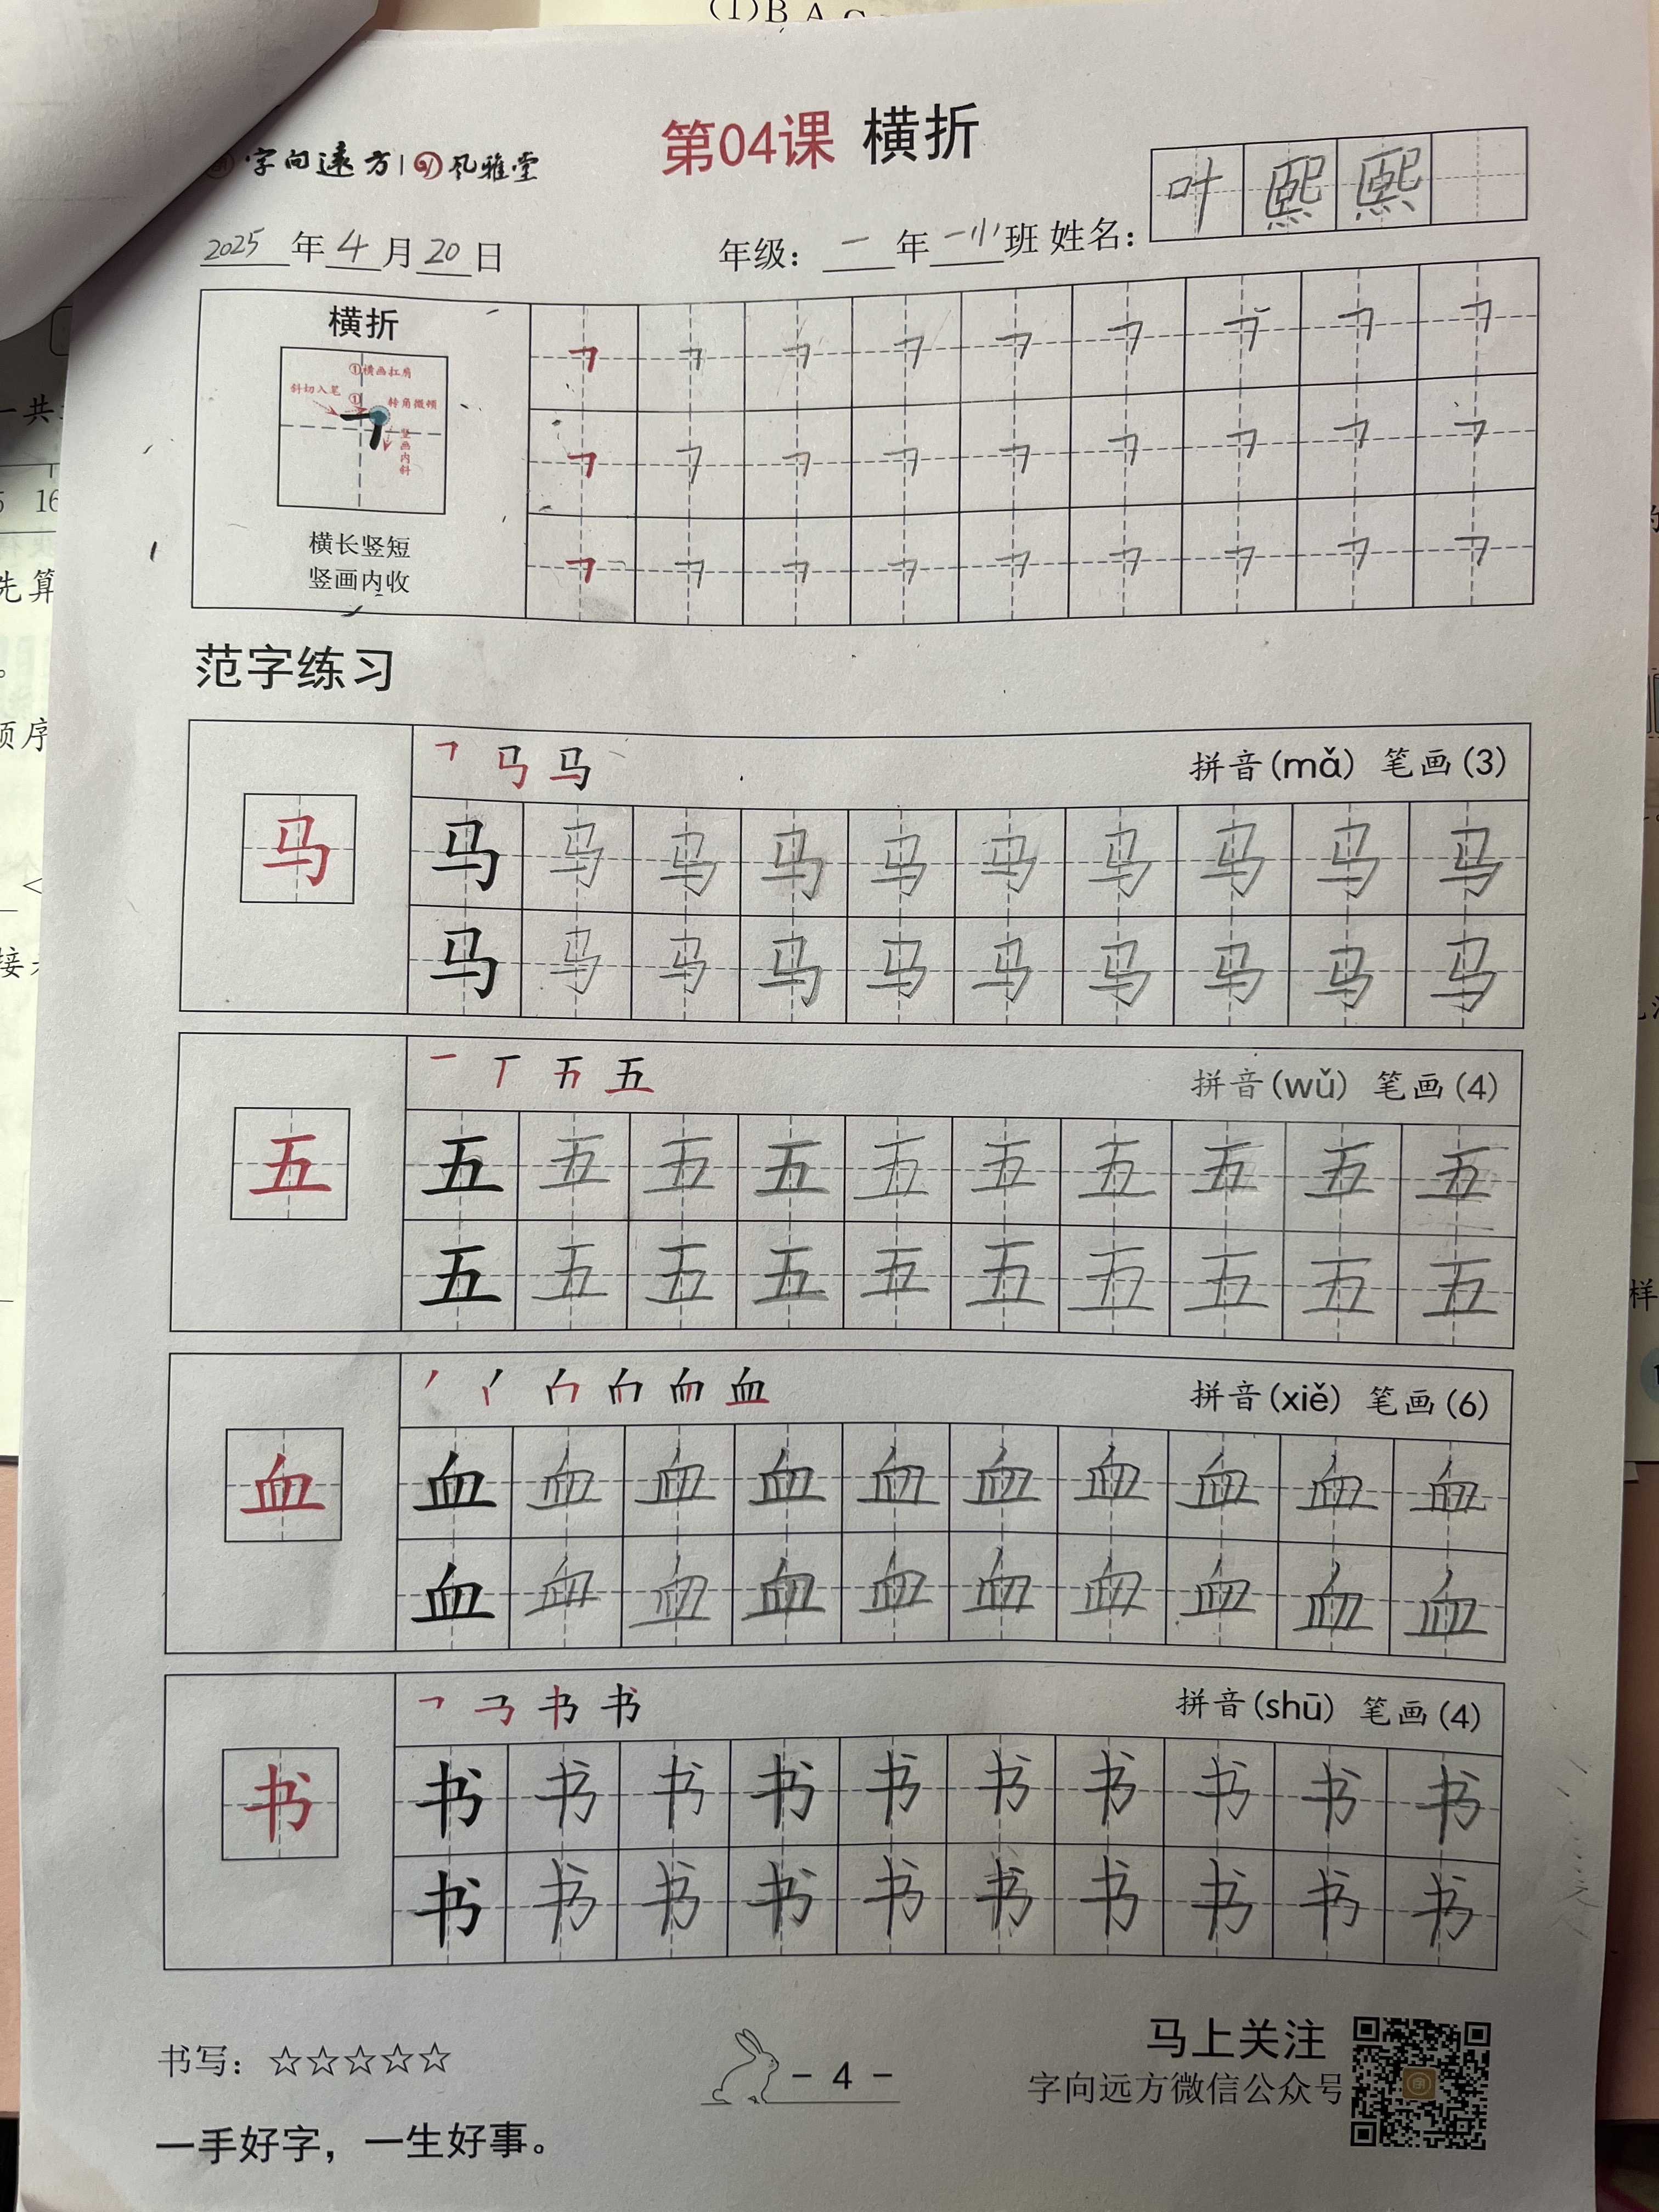 (1)B A C
第04课 横折
字向遠方 | 风雅堂
叶熙熙
2025年4月20日 年级：一年一小班 姓名：
横折
①横画扛肩
斜切入笔 ① 转角微顿
竖画内斜
横长竖短
竖画内收
范字练习
拼音(mǎ) 笔画(3)
马 马 马 马 马 马 马 马 马 马 马
马 马 马 马 马 马 马 马 马 马
五 拼音(wǔ) 笔画(4)
五 五 五 五 五 五 五 五 五 五 五
五 五 五 五 五 五 五 五 五 五
血 拼音(xiě) 笔画(6)
血 血 血 血 血 血 血 血 血 血 血
血 血 血 血 血 血 血 血 血 血
书 拼音(shū) 笔画(4)
书 书 书 书 书 书 书 书 书 书 书
书 书 书 书 书 书 书 书 书 书
书写：☆☆☆☆☆
- 4 -
马上关注
字向远方微信公众号
一手好字，一生好事。